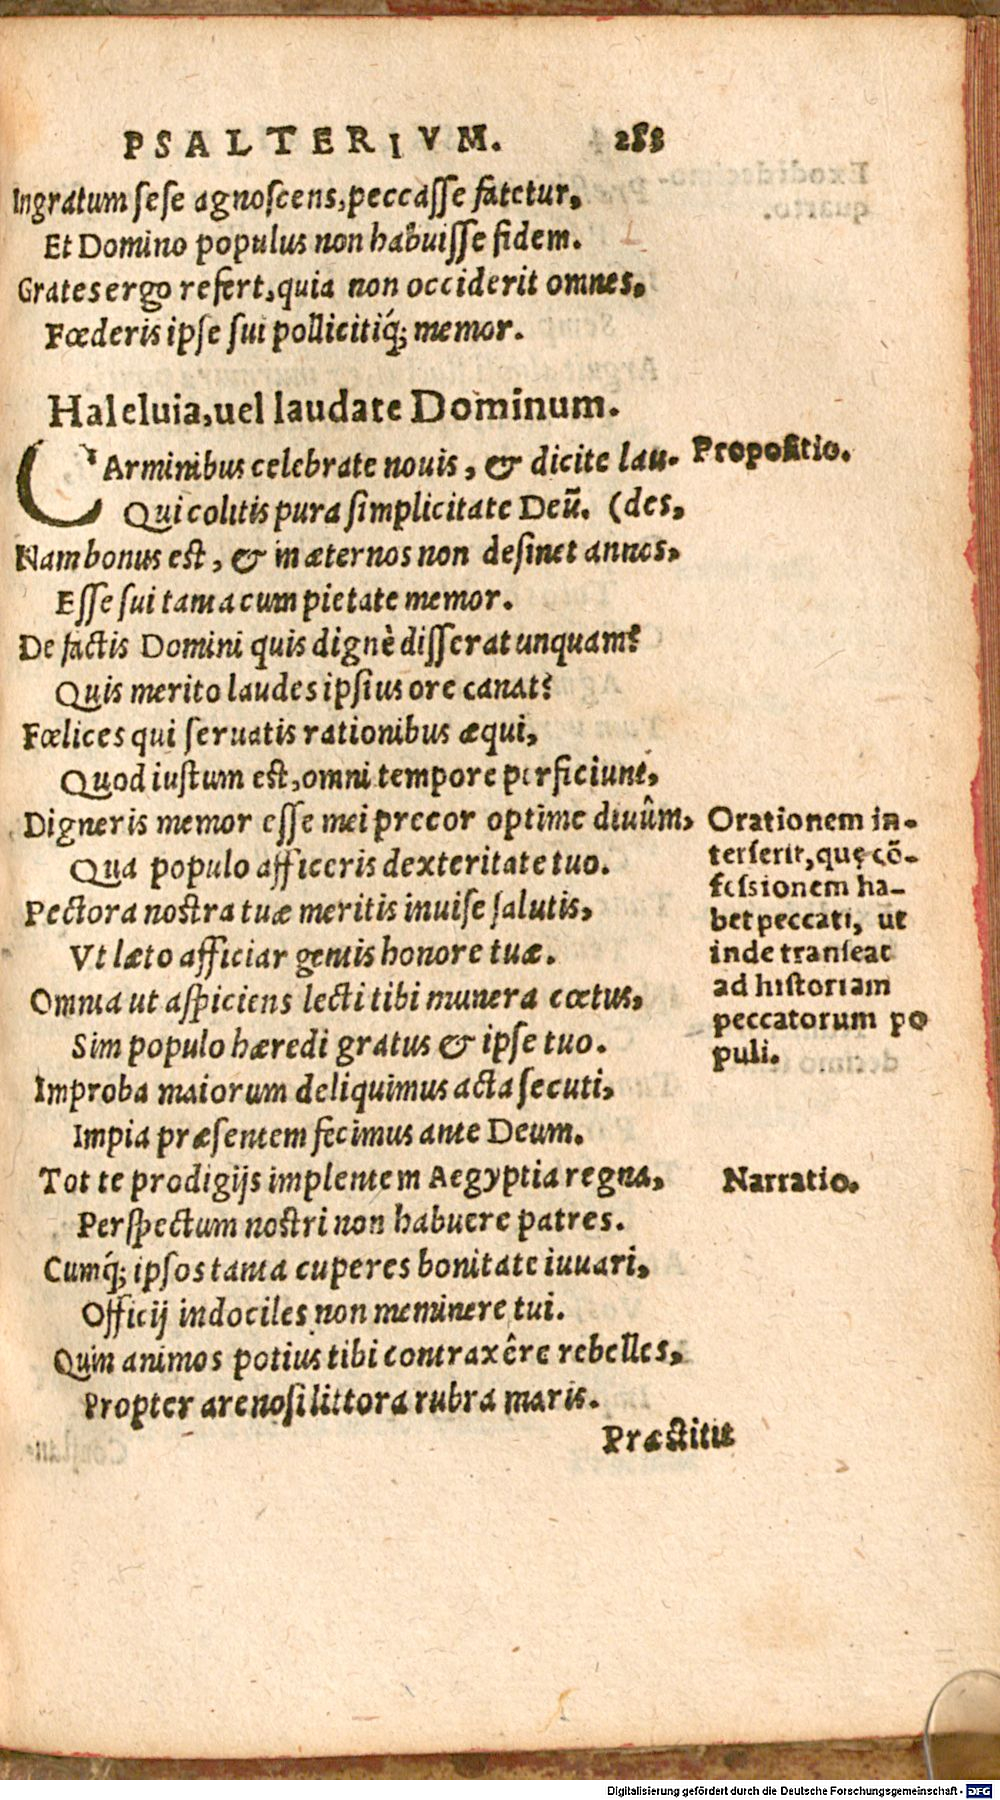 PSALTERIVM. 288
Ingratum sese agnoscens, peccasse fatetur,
Et Domino populus non habuisse fidem.
Grates ergo refert, quia non occiderit omnes,
Fœderis ipse sui pollicitiq́; memor.
Haleluia, uel laudate Dominum.
CArminibus celebrate nouis, & dicite lau-
Qui colitis pura simplicitate Deū. (des,
Nam bonus est, & in æternos non desinet annos,
Esse sui tanta cum pietate memor.
De factis Domini quis dignè disserat unquam?
Quis merito laudes ipsius ore canat?
Fœlices qui seruatis rationibus æqui,
Quod iustum est, omni tempore perficiunt,
Digneris memor esse mei precor optime diuûm,
Qua populo afficeris dexteritate tuo.
Pectora nostra tuæ meritis inuise salutis,
Vt læto afficiar gentis honore tuæ.
Omnia ut aspiciens lecti tibi munera cœtus,
Sim populo hæredi gratus & ipse tuo.
Improba maiorum deliquimus acta secuti,
Impia præsentem fecimus ante Deum.
Tot te prodigijs implentem Aegyptia regna,
Perspectum nostri non habuere patres.
Cumq́; ipsos tanta cuperes bonitate iuuari,
Officij indociles non meminere tui.
Quin animos potius tibi contraxêre rebelles,
Propter arenosi littora rubra maris.
Præstitit
Propositio.
Orationem in-
terserit, quę cō-
fessionem ha-
bet peccati, ut
inde transeat
ad historiam
peccatorum po
puli.
Narratio.
Digitalisierung gefördert durch die Deutsche Forschungsgemeinschaft - DFG